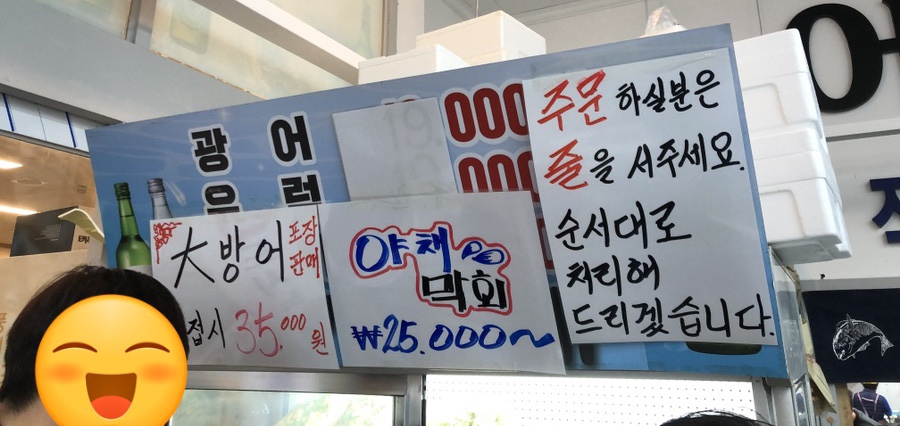 광 어
우 럭
000
000
주문 하실분은
줄을 서주세요.
순서대로
처리해
드리겠습니다.
大방어 포장
판매
접시 35.000원
야채
막회
₩25.000~